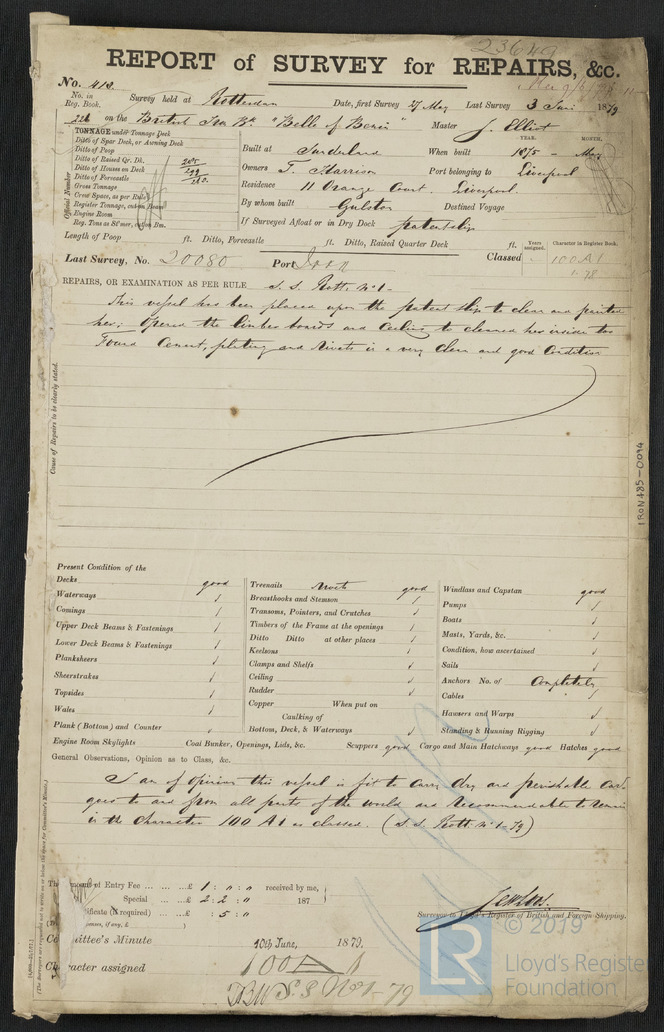 23649
REPORT of SURVEY for REPAIRS, &c.
No. 412
No. in Reg. Book. Survey held at Rotterdam Date, first Survey 27 May Last Survey 3 Juni 1879
221 on the British Iron Bk "Belle of Benin" Master J. Elliot
TONNAGE under Tonnage Deck
Ditto of Spar Deck, or Awning Deck
Ditto of Poop
Ditto of Raised Qr. Dk.
Ditto of Houses on Deck
Ditto of Forecastle
Gross Tonnage
Crew Space, as per Rule
Register Tonnage, cut on Beam
Engine Room
Reg. Tons as St'mer, cut on Bm.
Official Number
YEAR. MONTH.
Built at Sunderland When built 1875 - May
Owners T. Harrison Port belonging to Liverpool
Residence 11 Orange Court, Liverpool.
By whom built Gulston Destined Voyage
If Surveyed Afloat or in Dry Dock patent slip
Length of Poop ft. Ditto, Forecastle ft. Ditto, Raised Quarter Deck ft.
Years assigned. Character in Register Book.
Last Survey, No. 20080 Port Classed 100A1
1.78
REPAIRS, OR EXAMINATION AS PER RULE S. S. Rott. No 1-
This vessel has been placed upon the patent slip to clean and painted
her; opened the limber boards and ceiling to cleaned her inside too
Found Cement, plating and rivets in a very clean and good Condition
Cause of Repairs to be clearly stated.
IRON485-0094
Present Condition of the
Decks good
Waterways
Comings
Upper Deck Beams & Fastenings
Lower Deck Beams & Fastenings
Planksheers
Sheerstrakes
Topsides
Wales
Plank (Bottom) and Counter
Treenails Rivets good
Breasthooks and Stemson
Transoms, Pointers, and Crutches
Timbers of the Frame at the openings
Ditto Ditto at other places
Keelsons
Clamps and Shelfs
Ceiling
Rudder
Copper When put on
Caulking of
Bottom, Deck, & Waterways
Windlass and Capstan good
Pumps
Boats
Masts, Yards, &c.
Condition, how ascertained
Sails
Anchors No. of Completely
Cables
Hawsers and Warps
Standing & Running Rigging
Engine Room Skylights Coal Bunker, Openings, Lids, &c. Scuppers good Cargo and Main Hatchways good Hatches good
General Observations, Opinion as to Class, &c.
I am of opinion this vessel is fit to carry dry and perishable car
goes to and from all parts of the world and recommendable to remain
in the Character 100 A1 as classed. (S. S. Rott. No 1-79)
Amount of Entry Fee ... ... ...£ 1 : " : " received by me,
Special ... ...£ 2 : 2 : " 187
Certificate (if required) ...£ : 5 : "
Surveyor to Lloyd's Register of British and Foreign Shipping.
Committee's Minute 10th June, 1879.
Character assigned 100 A 1
S.S No 1-79
© 2019
LR Lloyd's Register
Foundation